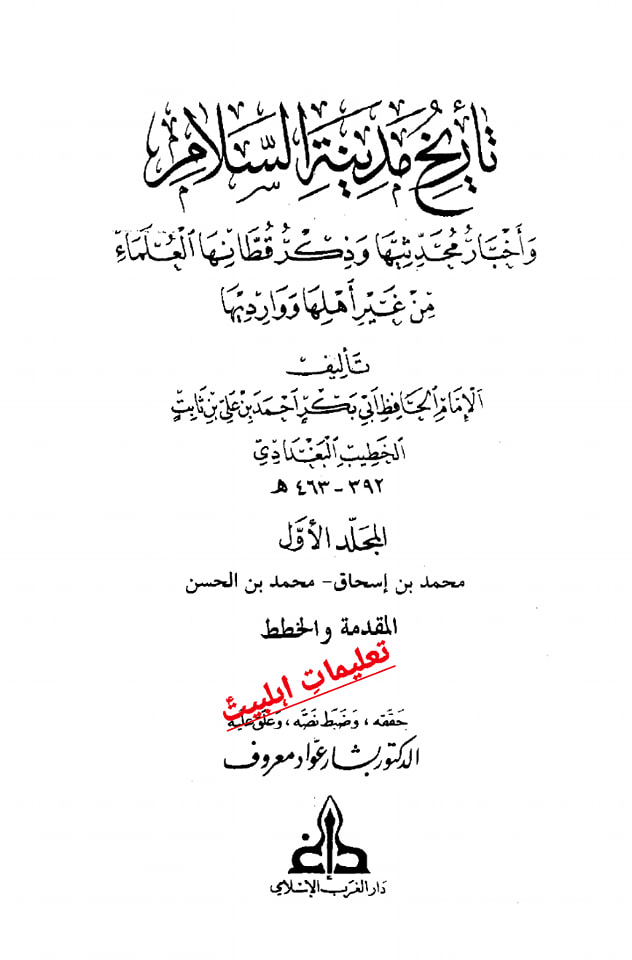 تَأريخُ مَدِينَةِ السَّلَامِ
وَأَخْبَارُ مُحَدِّثِيهَا وَذِكْرُ قُطَّانِهَا الْعُلَمَاءِ
مِنْ غَيْرِ أَهْلِهَا وَوَارِدِيهَا
تَأليف
الإِمَامِ الْحَافِظِ أَبِي بَكْرٍ أَحْمَدَ بْنِ عَلِيِّ بْنِ ثَابِتٍ
الْخَطِيبِ الْبَغْدَادِيِّ
٣٩٢ - ٤٦٣ هـ
المجلّد الأوّل
محمد بن إسحاق - محمد بن الحسن
المقدمة والخطط
تعليماتِ اہلبیتؑ
حَقَّقه، وَضَبَطَ نَصَّه، وَعَلَّقَ عَلَيْه
الدكتور بشار عوّاد معروف
دَار الغَرب الإسْلامي